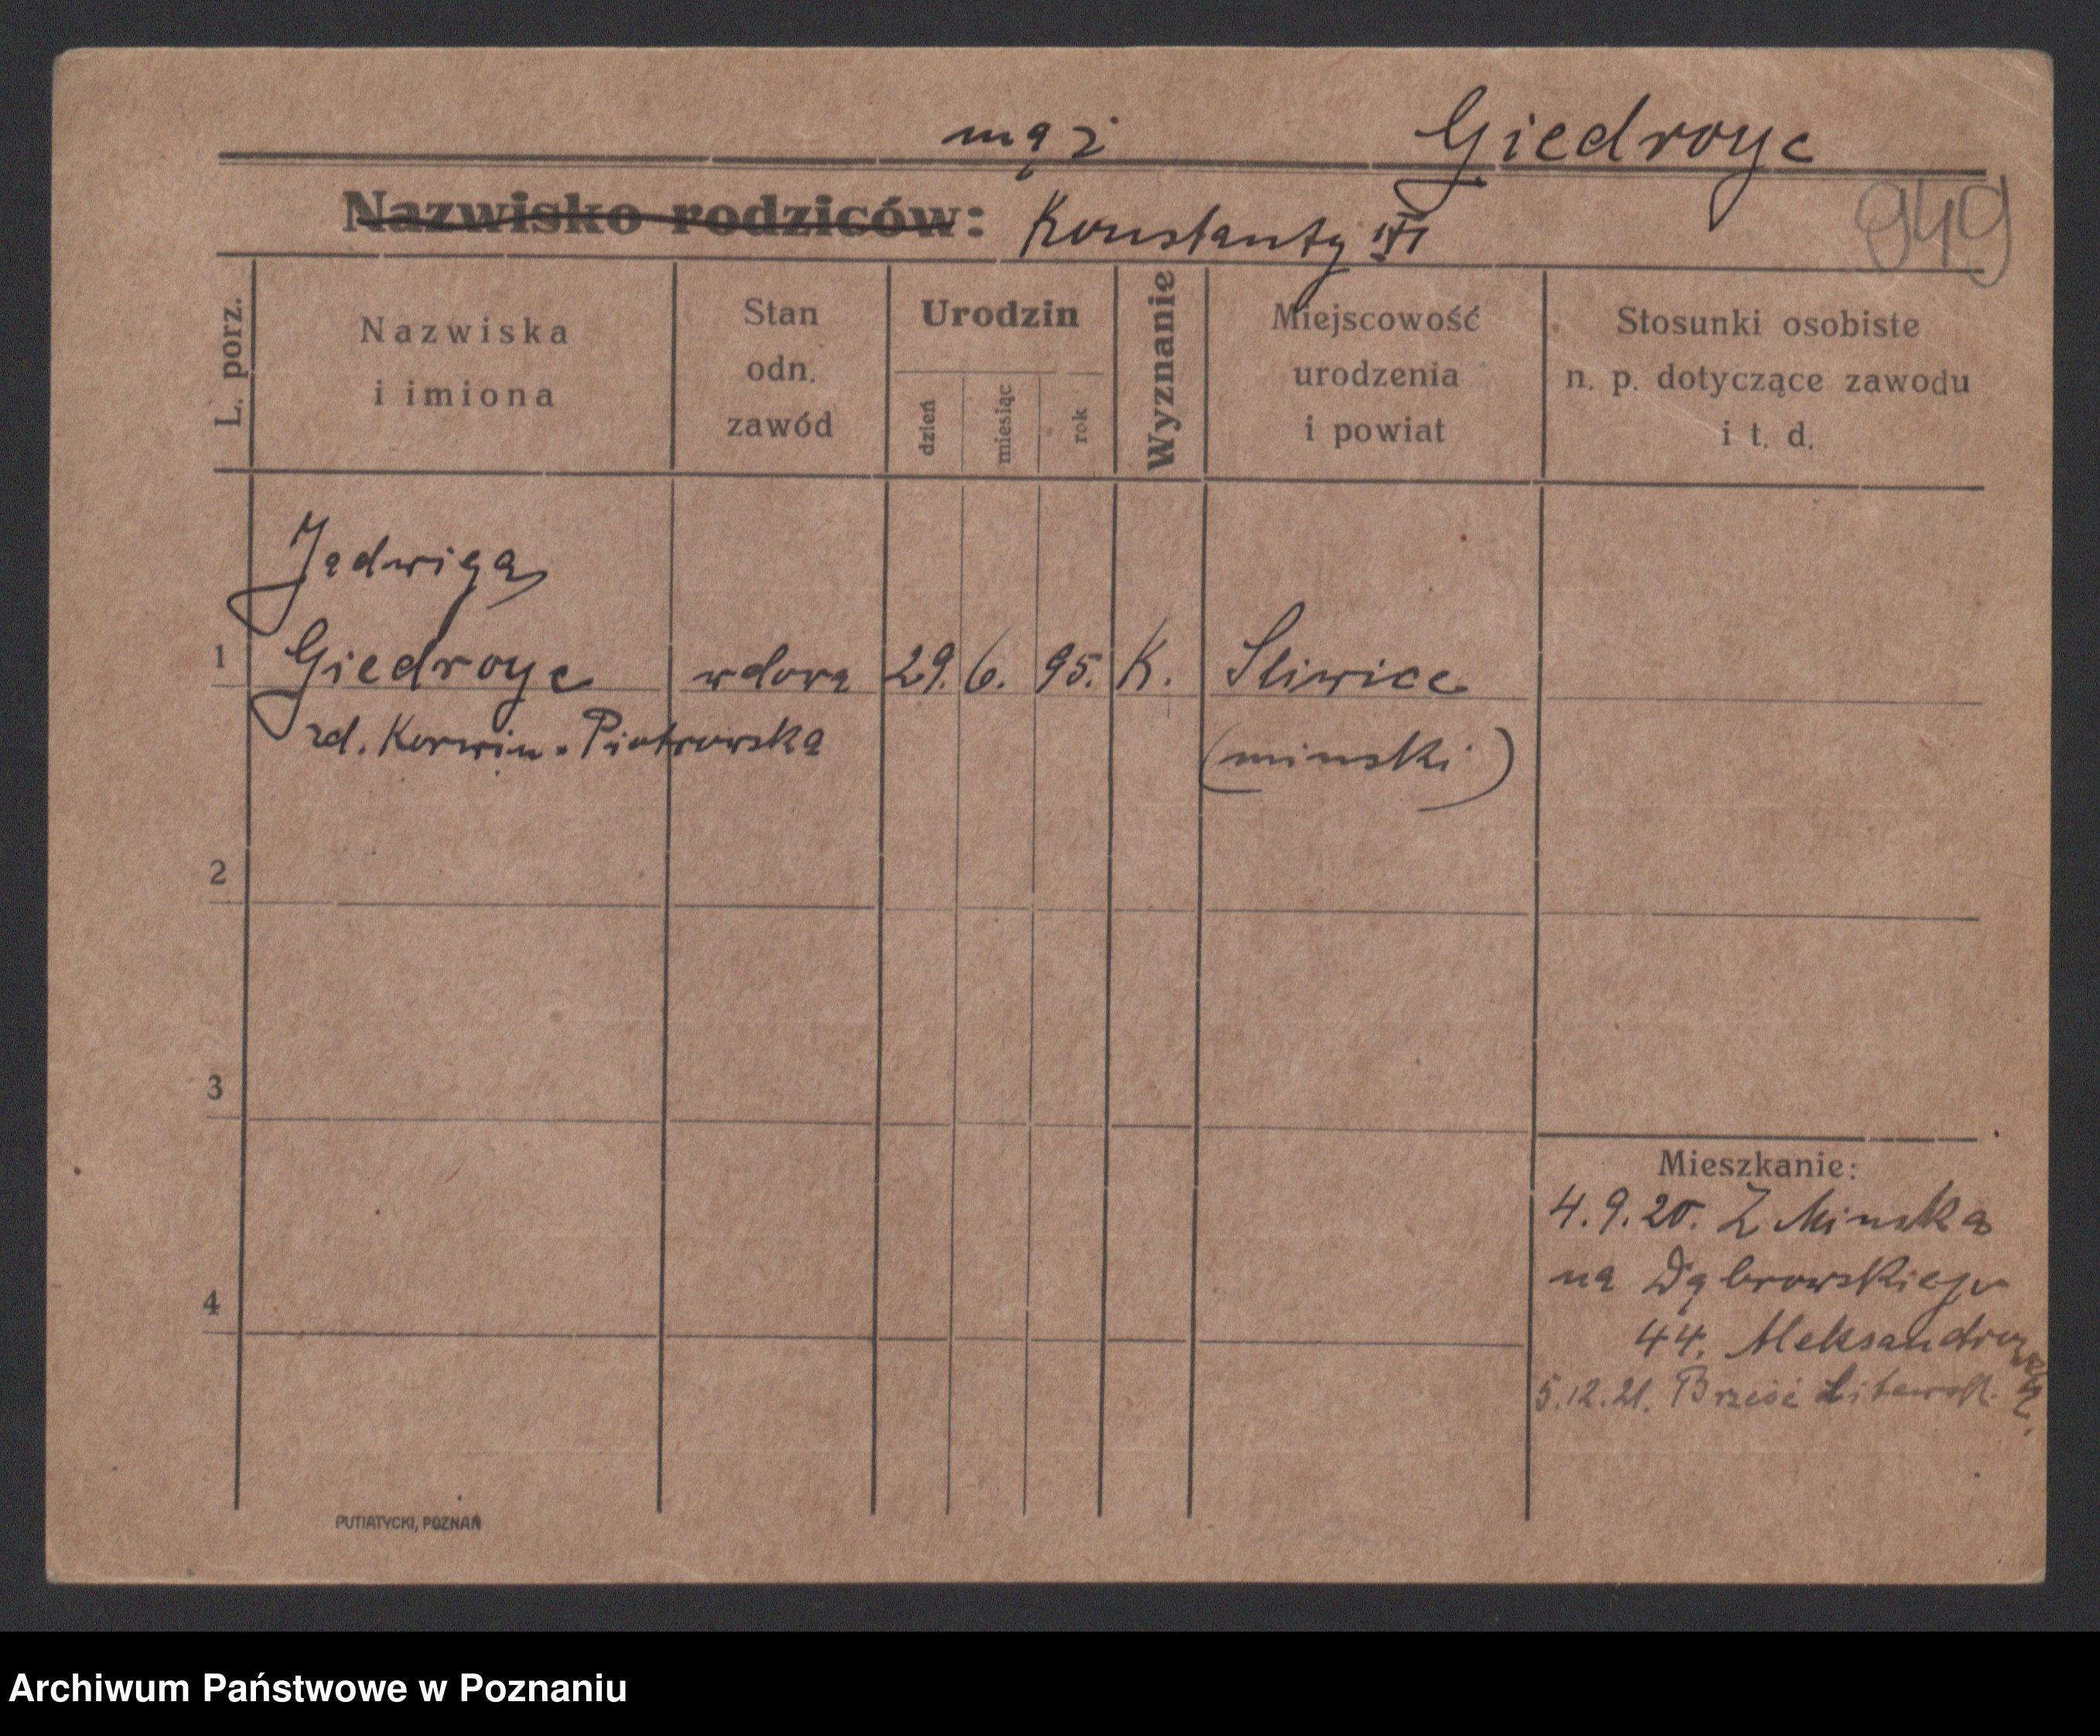 mąż Giedroyc
Nazwisko rodziców: Konstanty
949
L. porz.
Nazwiska
i imiona
Stan
odn.
zawód
Urodzin
dzień
miesiąc
rok
Wyznanie
Miejscowość
urodzenia
i powiat
Stosunki osobiste
n. p. dotyczące zawodu
i t. d.
Jadwiga
1 Giedroyc wdowa 29. 6. 95. K. Sliwice
zd. Korwin-Piotrowska (minski)
2
3
4
Mieszkanie:
4.9.20. Z Minska
na Dąbrowskiego
44.
5.12.21. Brześć Litewsk.
PUTIATYCKI, POZNAŃ
Archiwum Państwowe w Poznaniu